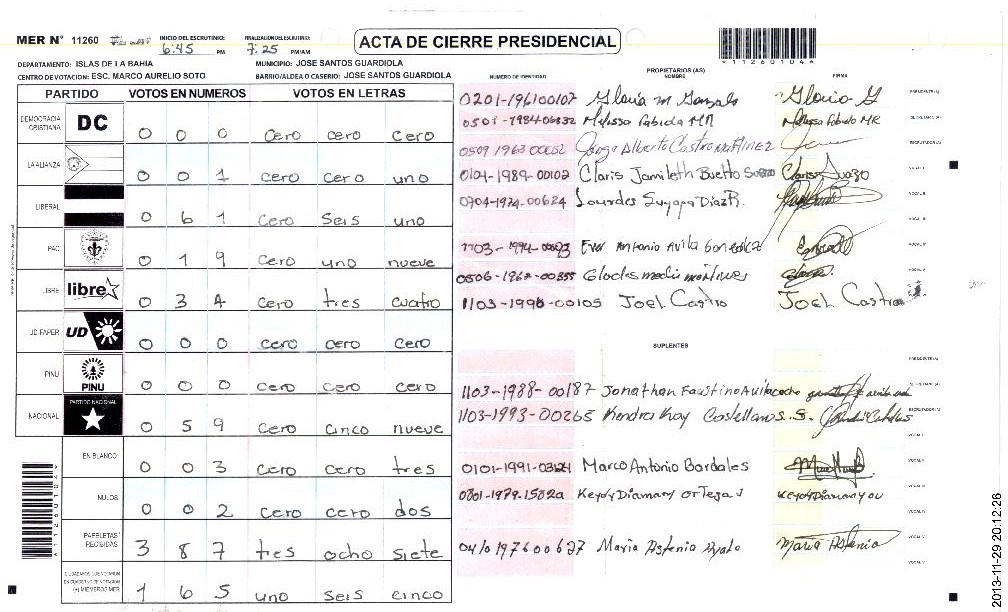 MER N° 11260
INICIO DEL ESCRUTINIO: 6:45 PM
FINALIZACION DEL ESCRUTINIO: 7:25 PM/AM
ACTA DE CIERRE PRESIDENCIAL
*11260104*
DEPARTAMENTO: ISLAS DE LA BAHIA MUNICIPIO: JOSE SANTOS GUARDIOLA
CENTRO DE VOTACION: ESC. MARCO AURELIO SOTO BARRIO/ALDEA O CASERIO: JOSE SANTOS GUARDIOLA
PARTIDO VOTOS EN NUMEROS VOTOS EN LETRAS
DEMOCRACIA CRISTIANA DC 0 0 0 cero cero cero
LA ALIANZA 0 0 1 cero cero uno
LIBERAL 0 6 1 cero seis uno
PAC 0 1 9 cero uno nueve
LIBRE libre 0 3 4 cero tres cuatro
UD FAPER UD 0 0 0 cero cero cero
PINU PINU 0 0 0 cero cero cero
NACIONAL PARTIDO NACIONAL 0 5 9 cero cinco nueve
EN BLANCO 0 0 3 cero cero tres
NULOS 0 0 2 cero cero dos
PAPELETAS RECIBIDAS 3 8 7 tres ocho siete
CIUDADANOS QUE VOTARON EN CUADERNO DE VOTACION (+) MIEMBROS MER 1 6 5 uno seis cinco
NUMERO DE IDENTIDAD PROPIETARIOS (AS) NOMBRE FIRMA
0201-196100107 Gloria M Gonzals Gloria G PRESIDENTE(A)
Melissa Fabiola MR Melissa Fabiola MR SECRETARIO(A)
0509 1963 00052 Jorge Alberto Castro Martinez ESCRUTADOR(A)
0101-1989-00102 Claris Jamileth Suazo Claris Suazo VOCAL I
0704-1974-00624 Lourdes Suyapa Diaz R. VOCAL II
VOCAL III
Ever Antonio Avila VOCAL IV
0506-1962-00355 VOCAL V
1103-1990-00105 Joel Castro Joel Castro
SUPLENTES
PRESIDENTE(A)
1103-1988-00187 Jonathan Faustino Avila SECRETARIO(A)
1103-1993-00265 Kendra Kay Castellanos S. ESCRUTADOR(A)
VOCAL I
0101-1991-03121 Marco Antonio Bardales VOCAL II
Keydy Diamary Ortega VOCAL III
VOCAL IV
0410 1976 00627 Maria Astenia Maria Astenia VOCAL V
2013-11-29 20:12:26